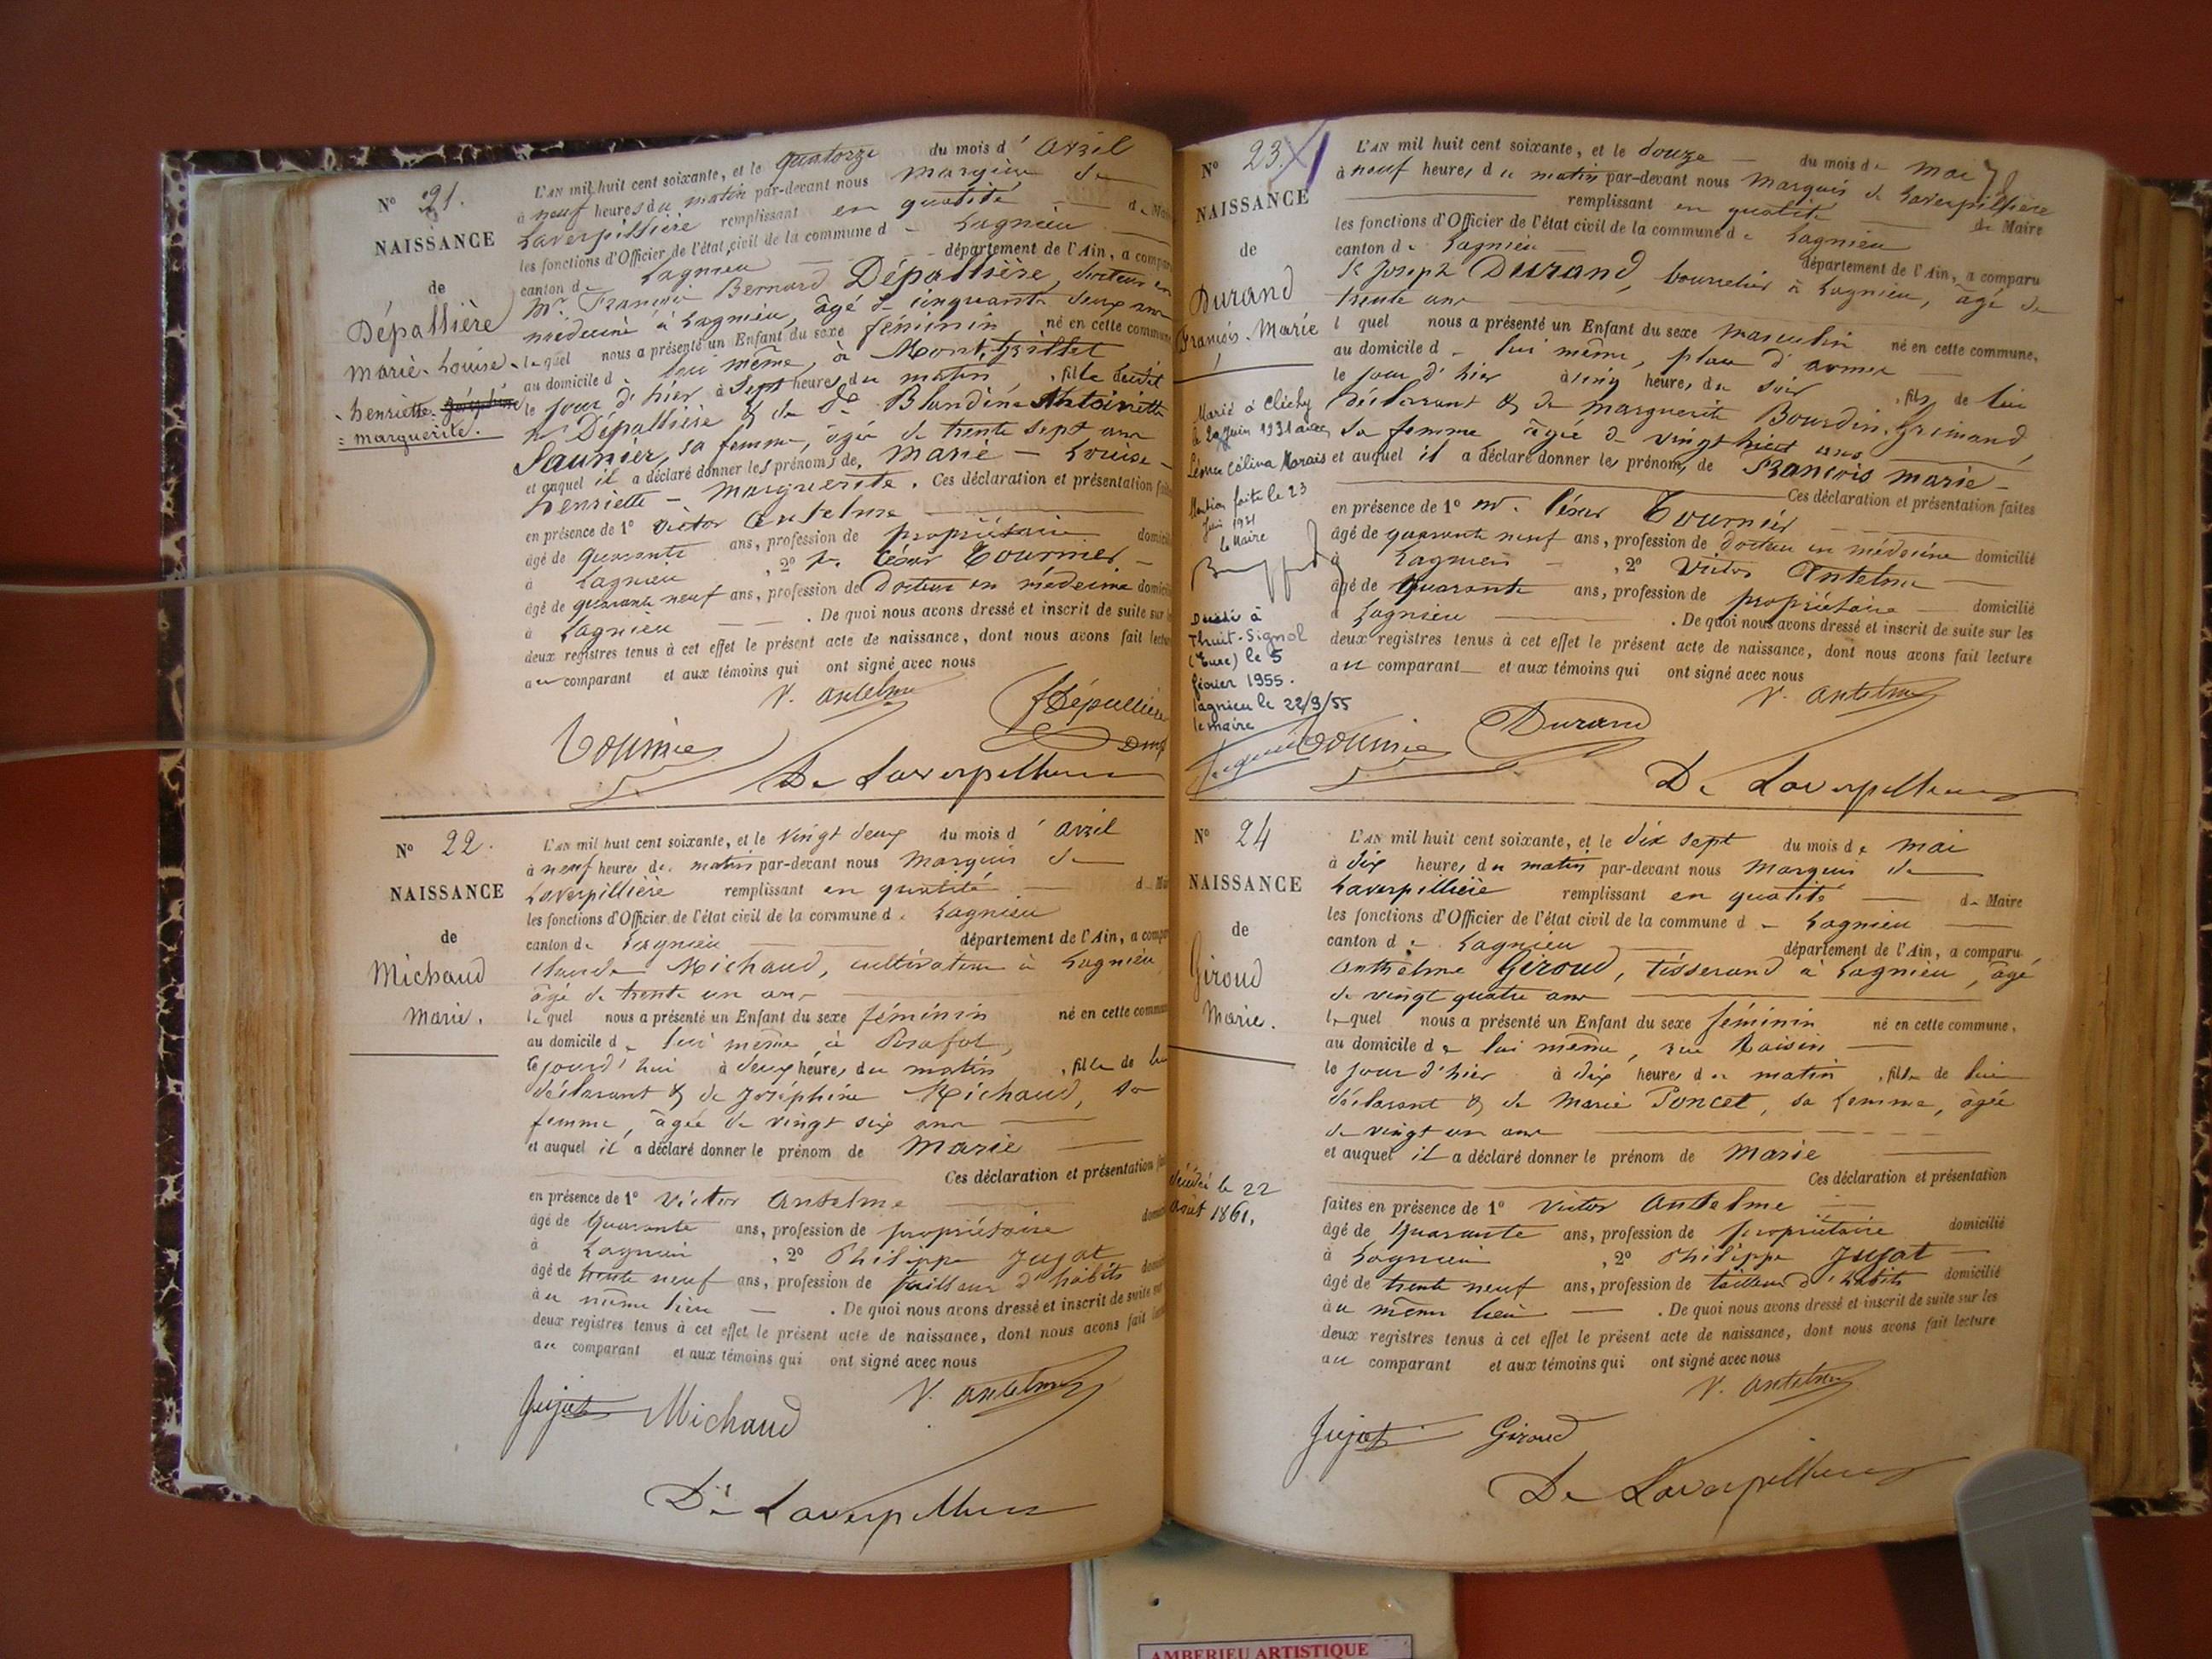 N° 21.
NAISSANCE
de
Dépallière
Marie-Louise-
-henriette-
=marguerite.
L'AN mil huit cent soixante, et le quatorze du mois d'avril
à neuf heures du matin par-devant nous Marquis de
Laverpillière remplissant en qualité de
les fonctions d'Officier de l'état civil de la commune de Lagnieu
canton de Lagnieu département de l'Ain, a compar
Mr. François Bernard Dépallière, docteur en
médecine à Lagnieu, âgé de cinquante deux ans
lequel nous a présenté un Enfant du sexe féminin né en cette commune
au domicile de lui même, à
le jour d'hier à sept heures du matin, fille dudit
Mr Dépallière & de De Blandine Antoinette
Saunier, sa femme, âgée de trente sept ans
et auquel il a déclaré donner les prénoms de Marie - Louise -
henriette - marguerite. Ces déclaration et présentation fai
en présence de 1° Victor Antelme
âgé de quarante ans, profession de propriétaire domicil
à Lagnieu, 2° Mr. César Tournier -
âgé de quarante neuf ans, profession de Docteur en médecine domici
à Lagnieu. De quoi nous avons dressé et inscrit de suite sur le
deux registres tenus à cet effet le présent acte de naissance, dont nous avons fait lectu
au comparant et aux témoins qui ont signé avec nous
V. Antelme
Dépallière
Tournier
De Laverpilliere
N° 22.
NAISSANCE
de
Michaud
Marie.
L'AN mil huit cent soixante, et le vingt deux du mois d'avril
à neuf heures du matin par-devant nous Marquis de
Laverpillière remplissant en qualité
les fonctions d'Officier de l'état civil de la commune de Lagnieu
canton de Lagnieu département de l'Ain, a compa
Claude Michaud, cultivateur à Lagnieu,
âgé de trente un ans
lequel nous a présenté un Enfant du sexe féminin né en cette commun
au domicile de lui même à
cejourd'hui à deux heures du matin, fille de lui
déclarant & de Joséphine Michaud, sa
femme, âgée de vingt six ans
et auquel il a déclaré donner le prénom de Marie
Ces déclaration et présentation
en présence de 1° Victor Antelme
âgé de quarante ans, profession de propriétaire
à Lagnieu, 2° Philippe Jujat
âgé de trente neuf ans, profession de tailleur d'habits
au même lieu. De quoi nous avons dressé et inscrit de suite sur
deux registres tenus à cet effet le présent acte de naissance, dont nous avons fait
au comparant et aux témoins qui ont signé avec nous
V. Antelme
Jujat Michaud
De Laverpilliere
N° 23.
NAISSANCE
de
Durand
François-Marie
Marié à Clichy
le 20 Juin 1931 avec
Célina Marais
Mention faite le 23
Juin 1931
le Maire
Décédé à
Thuit-Signol
(Eure) le 5
février 1955.
Lagnieu le 22/3/55
le maire
L'AN mil huit cent soixante, et le douze du mois de mai
à neuf heures du matin par-devant nous Marquis de Laverpillière
remplissant en qualité de Maire
les fonctions d'Officier de l'état civil de la commune de Lagnieu
canton de Lagnieu département de l'Ain, a comparu
Sr Joseph Durand, bourrelier à Lagnieu, âgé de
trente ans
lequel nous a présenté un Enfant du sexe masculin né en cette commune,
au domicile de lui même, place d'armes
le jour d'hier à cinq heures du soir, fils de lui
déclarant & de Marguerite Bourdin Grimand,
sa femme âgée de vingt huit ans
et auquel il a déclaré donner les prénoms de François marie-
Ces déclaration et présentation faites
en présence de 1° Mr. César Tournier
âgé de quarante neuf ans, profession de docteur en médecine domicilié
à Lagnieu, 2° Victor Antelme
âgé de quarante ans, profession de propriétaire domicilié
à Lagnieu. De quoi nous avons dressé et inscrit de suite sur les
deux registres tenus à cet effet le présent acte de naissance, dont nous avons fait lecture
au comparant et aux témoins qui ont signé avec nous
V. Antelme
Tournier Durand
De Laverpilliere
N° 24
NAISSANCE
de
Giroud
Marie.
décédée le 22
août 1861.
L'AN mil huit cent soixante, et le dix sept du mois de mai
à dix heures du matin par-devant nous Marquis de
Laverpillière remplissant en qualité de Maire
les fonctions d'Officier de l'état civil de la commune de Lagnieu
canton de Lagnieu département de l'Ain, a comparu
Anthelme Giroud, tisserand à Lagnieu, âgé
de vingt quatre ans
lequel nous a présenté un Enfant du sexe féminin né en cette commune,
au domicile de lui même, rue Raisin
le jour d'hier à dix heures du matin, fille de lui
déclarant & de Marie Poncet, sa femme, âgée
de vingt un ans
et auquel il a déclaré donner le prénom de Marie
Ces déclaration et présentation
faites en présence de 1° Victor Antelme
âgé de quarante ans, profession de propriétaire domicilié
à Lagnieu, 2° Philippe Jujat
âgé de trente neuf ans, profession de tailleur d'habits domicilié
au même lieu. De quoi nous avons dressé et inscrit de suite sur les
deux registres tenus à cet effet le présent acte de naissance, dont nous avons fait lecture
au comparant et aux témoins qui ont signé avec nous
V. Antelme
Jujat Giroud
De Laverpilliere
AMBERIEU ARTISTIQUE